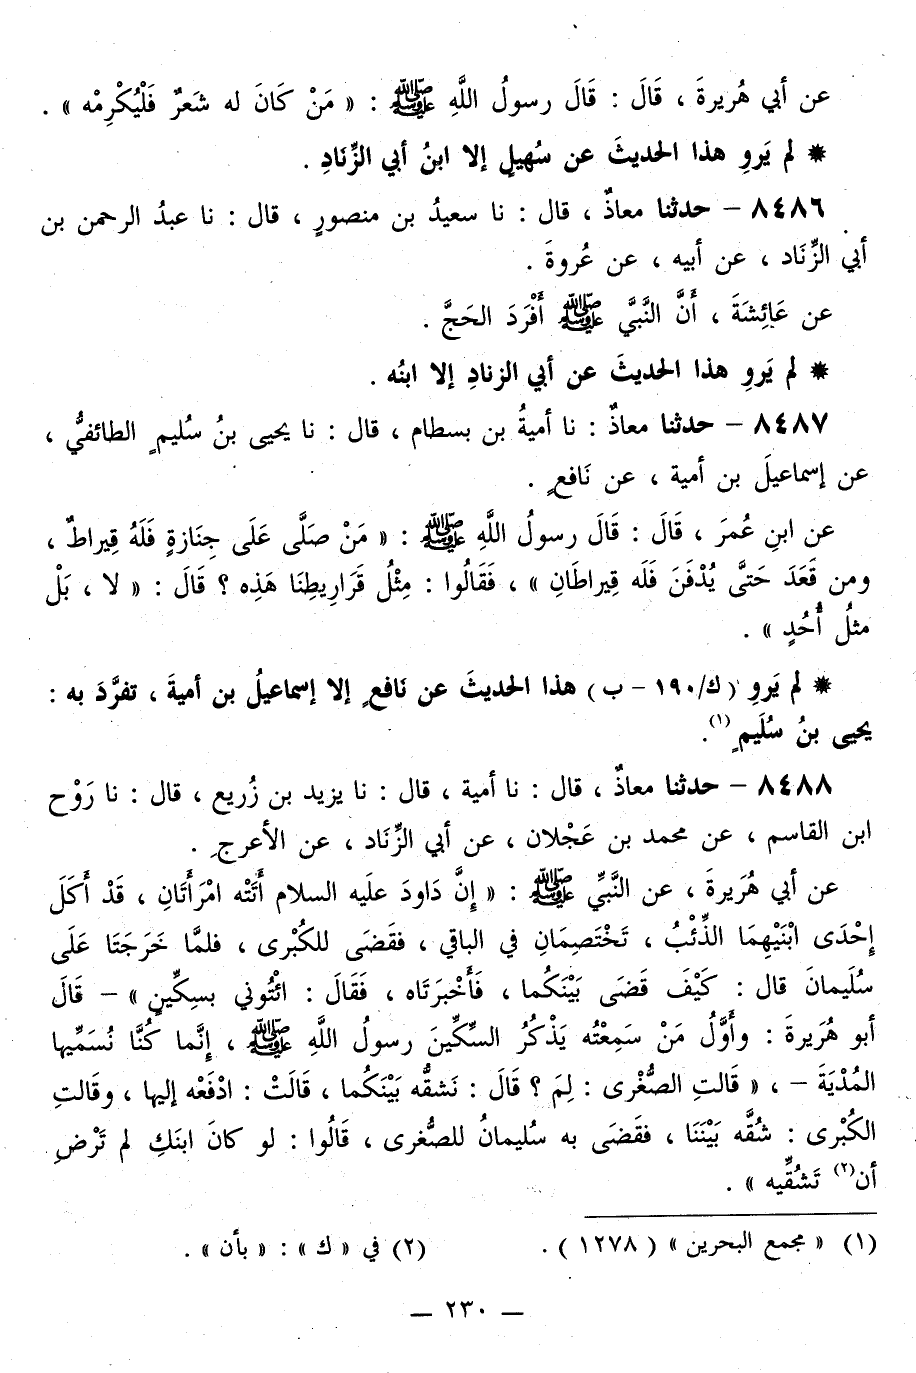 عن أبي هُريرةَ ، قَالَ : قَالَ رسولُ اللَّهِ ﷺ : « مَنْ كَانَ له شعَرٌ فَلْيُكْرِمْه » .
* لم يَروِ هذا الحديثَ عن سُهيلٍ إلا ابنُ أبي الزِّنَادِ .
٨٤٨٦ - حدثنا معاذٌ ، قال : نا سعيدُ بن منصورٍ ، قال : نا عبدُ الرحمن بن
أبي الزِّنَاد ، عن أبيه ، عن عُروةَ .
عن عَائِشَةَ ، أَنَّ النَّبيَّ ﷺ أَفْرَدَ الحَجَّ .
* لم يَروِ هذا الحديثَ عن أبي الزنادِ إلا ابنُه .
٨٤٨٧ - حدثنا معاذٌ : نا أميةُ بن بسطام ، قال : نا يحيى بنُ سُليمٍ الطائفيُّ ،
عن إسماعيلَ بن أمية ، عن نَافعٍ .
عن ابنِ عُمرَ ، قَالَ : قَالَ رسولُ اللَّهِ ﷺ : « مَنْ صَلَّى عَلَى جِنَازةٍ فَلَهُ قِيراطٌ ،
ومن قَعَدَ حَتَّى يُدْفَنَ فَلَه قِيراطَانِ » ، فَقَالُوا : مِثْلُ قَرَارِيطِنَا هَذِه ؟ قَالَ : « لا ، بَلْ
مثلُ أُحُدٍ » .
* لم يَروِ (ك/١٩٠ - ب) هذا الحديثَ عن نَافعٍ إلا إسماعيلُ بن أميةَ ، تفرَّدَ به :
يحيى بنُ سُلَيمٍ(١).
٨٤٨٨ - حدثنا معاذٌ ، قال : نا أمية ، قال : نا يزيد بن زُريع ، قال : نا رَوْح
ابن القاسم ، عن محمد بن عَجْلان ، عن أبي الزِّنَاد ، عن الأعرجِ .
عن أبي هُرَيرةَ ، عن النَّبيِّ ﷺ : « إِنَّ دَاودَ علَيه السلام أَتَتْه امْرَأَتَانِ ، قَدْ أَكَلَ
إِحْدَى ابْنَيْهِمَا الذِّئْبُ ، تَخْتَصِمَانِ في الباقي ، فقَضَى للكُبْرى ، فلمَّا خَرَجَتَا عَلَى
سُلَيمانَ قال : كَيْفَ قَضَى بَيْنَكُما ، فَأَخْبرَتَاه ، فَقَالَ : ائْتُوني بسِكِّينٍ » - قَالَ
أبو هُرَيرةَ : وأَوَّلُ مَنْ سَمِعْتُه يَذْكُرُ السِّكِّينَ رسولُ اللَّهِ ﷺ ، إِنَّما كُنَّا نُسَمِّيها
المُدْيَةَ - ، « قَالتِ الصُّغْرى : لِمَ ؟ قَالَ : نَشقُّه بَيْنَكُما ، قَالَتْ : ادْفَعْه إليها ، وقَالتِ
الكُبْرى : شُقَّه بَيْنَنَا ، فقَضَى به سُليمانُ للصُّغرى ، قَالُوا : لو كانَ ابنَكِ لم تَرْضِ
أن(٢) تَشُقِّيه » .
(١) « مجمع البحرين » ( ١٢٧٨ ) . (٢) في « ك » : « بأن » .
— ٢٣٠ —